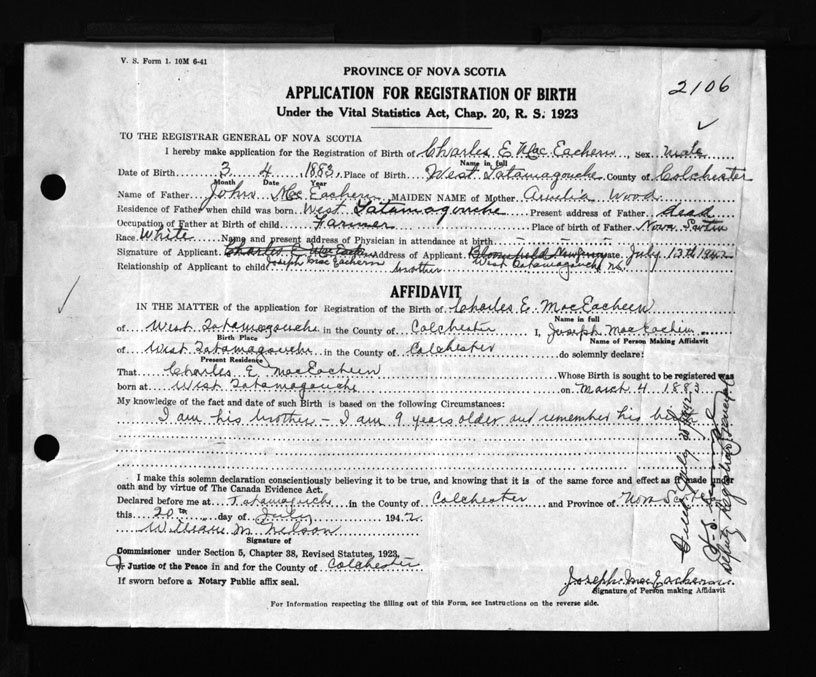 V. S. Form 1. 10M 6-41
PROVINCE OF NOVA SCOTIA
2106
APPLICATION FOR REGISTRATION OF BIRTH
Under the Vital Statistics Act, Chap. 20, R. S. 1923
TO THE REGISTRAR GENERAL OF NOVA SCOTIA
I hereby make application for the Registration of Birth of Charles E. MacEachern, Sex male
Name in full
Date of Birth 3 4 1883, Place of Birth West Tatamagouche County of Colchester
Month Date Year
Name of Father John MacEachern MAIDEN NAME of Mother Amelia Wood
Residence of Father when child was born West Tatamagouche Present address of Father dead
Occupation of Father at Birth of child Farmer Place of birth of Father Nova Scotia
Race White Name and present address of Physician in attendance at birth - - - -
Signature of Applicant Address of Applicant Date July 13th 1942
Joseph MacEachern West Tatamagouche N.S.
Relationship of Applicant to child brother
AFFIDAVIT
IN THE MATTER of the application for Registration of the Birth of Charles E. MacEachern
Name in full
of West Tatamagouche in the County of Colchester I, Joseph MacEachern
Birth Place Name of Person Making Affidavit
of West Tatamagouche in the County of Colchester do solemnly declare:
Present Residence
That Charles E. MacEachern Whose Birth is sought to be registered was
born at West Tatamagouche on March 4 1883
My knowledge of the fact and date of such Birth is based on the following Circumstances:
I am his brother - I am 9 years older and remember his birth
I make this solemn declaration conscientiously believing it to be true, and knowing that it is of the same force and effect as if made under
oath and by virtue of The Canada Evidence Act.
Declared before me at Tatamagouche in the County of Colchester and Province of Nova Scotia
this 20th day of July 1942
William M. Nelson
Signature of
Commissioner under Section 5, Chapter 38, Revised Statutes, 1923,
or Justice of the Peace in and for the County of Colchester
If sworn before a Notary Public affix seal.
Joseph MacEachern
Signature of Person making Affidavit
For Information respecting the filling out of this Form, see Instructions on the reverse side.
Deputy Registrar General